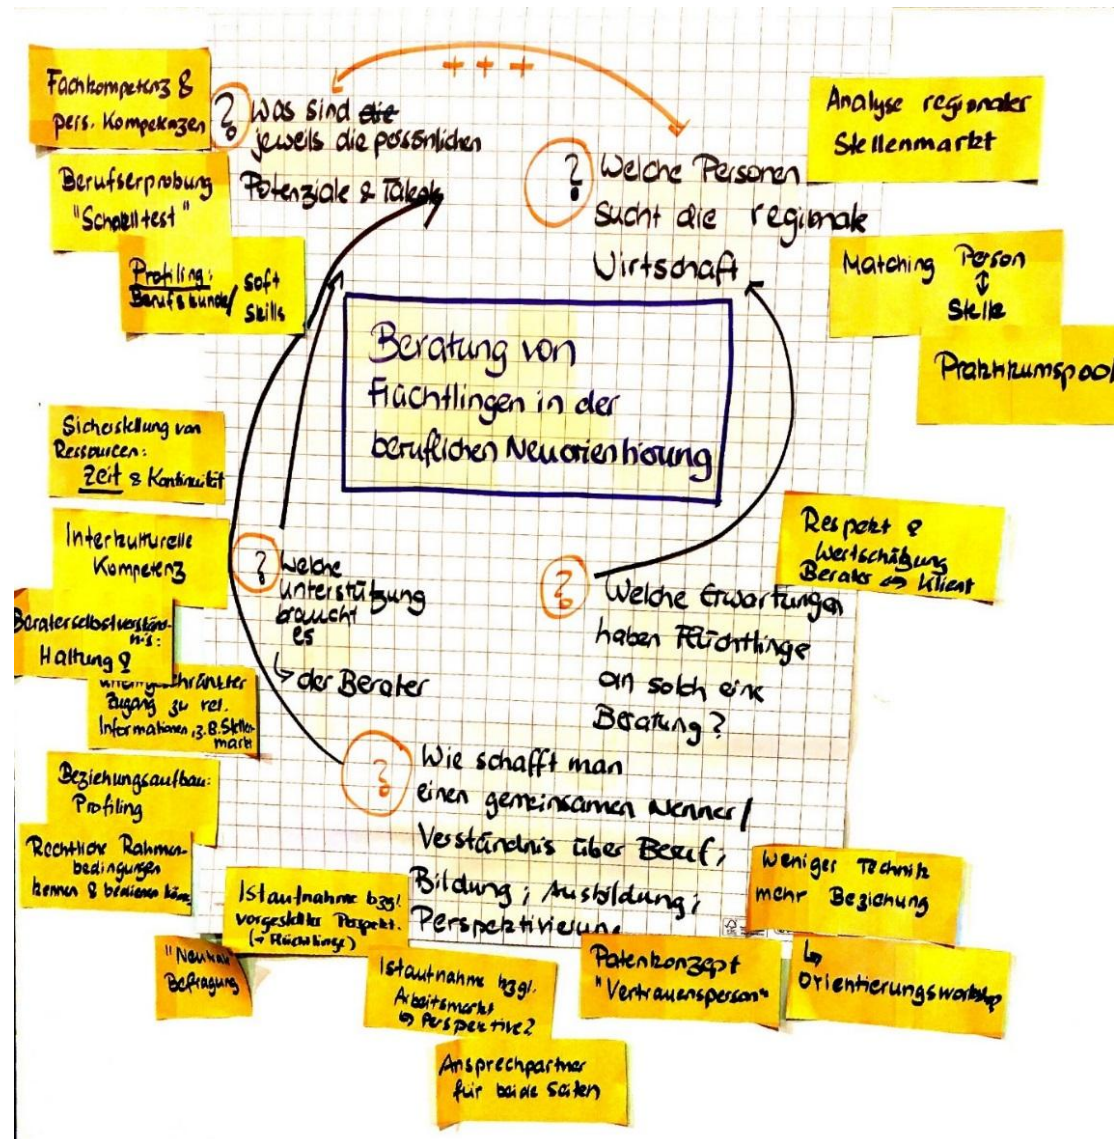 Fachkompetenz &
pers. Kompetenzen
Berufserprobung
"Schnelltest"
Profiling:
Berufskunde/ soft
skills
+ + +
? Was sind die
jeweils die persönlichen
Potenziale & Talente
? Welche Personen
sucht die regionale
Wirtschaft
Analyse regionaler
Stellenmarkt
Matching Person
↕
Stelle
Praktikumspool
Beratung von
Flüchtlingen in der
beruflichen Neuorientierung
Sicherstellung von
Ressourcen:
Zeit & Kontinuität
Interkulturelle
Kompetenz
Beraterselbstverständ-
nis:
Haltung
uneingeschränkter
Zugang zu rel.
Informationen, z.B. Stellen-
markt
Beziehungsaufbau:
Profiling
Rechtliche Rahmen-
bedingungen
kennen & bedienen
? Welche
unterstützung
braucht
es
↳ der Berater
? Welche Erwartungen
haben Flüchtlinge
an solch eine
Beratung?
Respekt &
Wertschätzung
Berater ↔ Klient
? Wie schafft man
einen gemeinsamen Nenner/
Verständnis über Beruf,
Bildung, Ausbildung,
Perspektivierung
Istaufnahme bzgl.
vorgestellter Perspekt.
(→ Flüchtlinge)
"Neutrale"
Befragung
Istaufnahme bzgl.
Arbeitsmarkt
↳ Perspektive?
Ansprechpartner
für beide Seiten
Patenkonzept
"Vertrauensperson"
Weniger Technik
mehr Beziehung
↳
Orientierungsworkshop